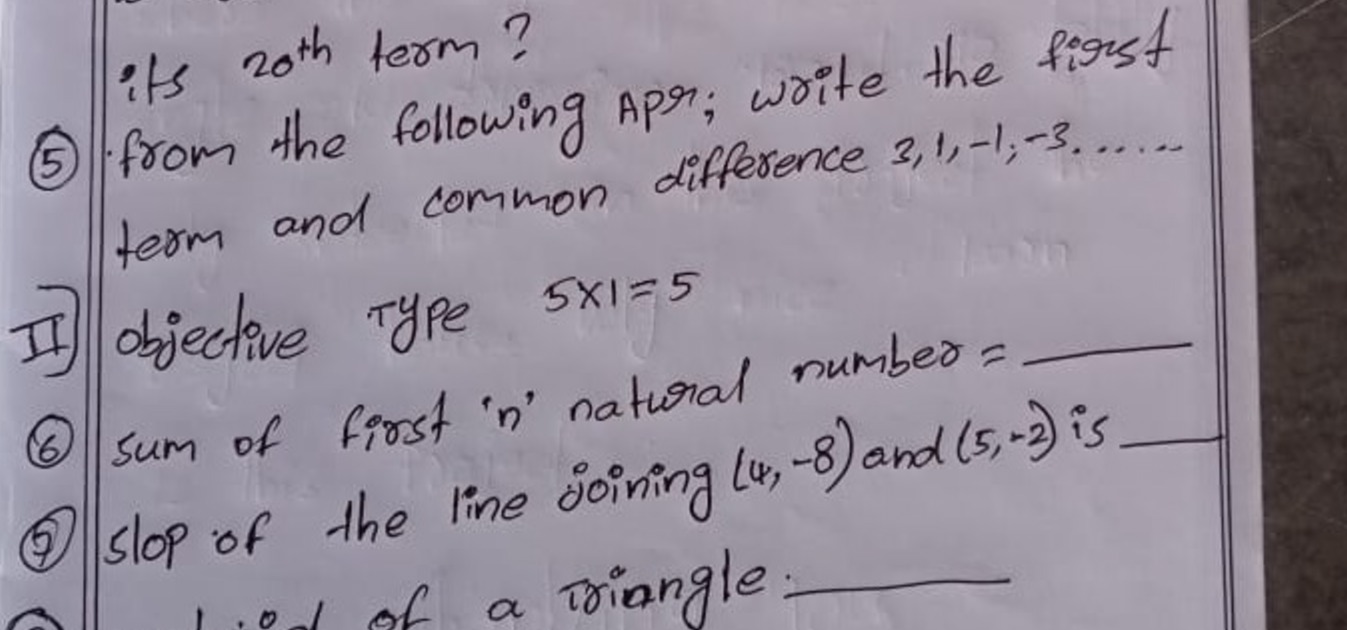 its 20th term?
⑤ from the following APs; write the first
term and common difference 3, 1, -1, -3......
II] objective Type 5x1=5
⑥ sum of first 'n' natural number = ____
⑦ slop of the line joining (4, -8) and (5, -2) is ____
of a Triangle. ____